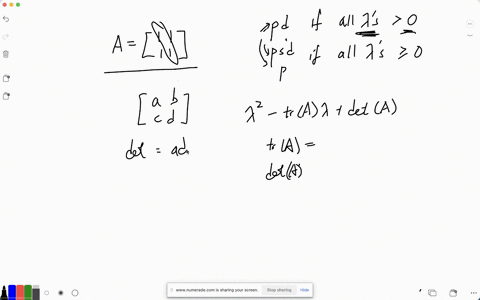 pd if all λ's > 0
A = [1 1
1 1]
psd if all λ's ≥ 0
p
[a b
c d]
λ² - tr(A)λ + det(A)
det = ad
tr(A) =
det(A)
www.numerade.com is sharing your screen. Stop sharing Hide